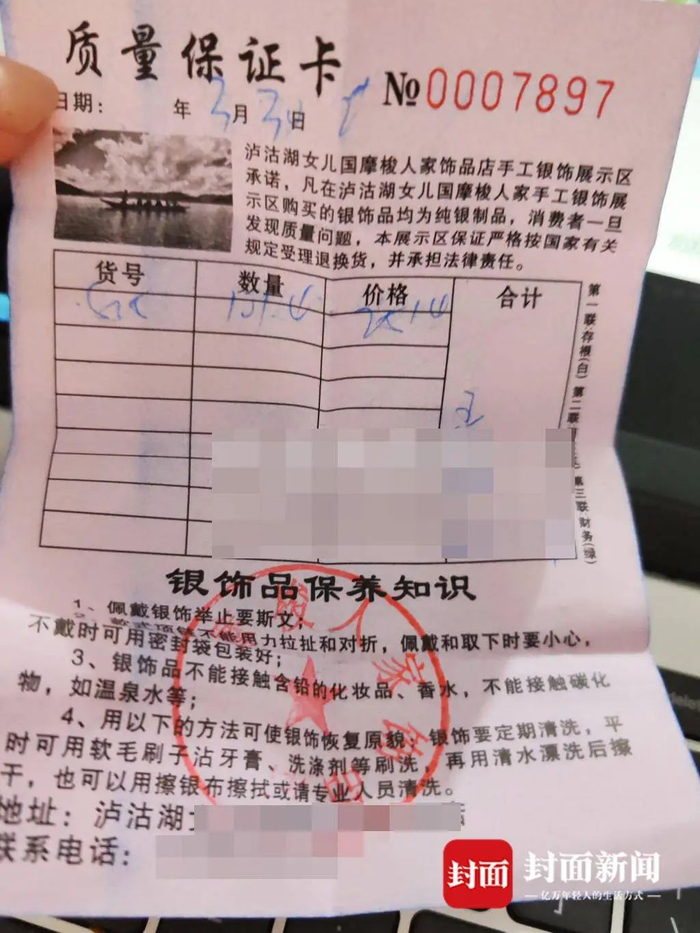 质量保证卡
№0007897
日期： 年3月30日
泸沽湖女儿国摩梭人家饰品店手工银饰展示区
承诺，凡在泸沽湖女儿国摩梭人家手工银饰展
示区购买的银饰品均为纯银制品，消费者一旦
发现质量问题，本展示区保证严格按国家有关
规定受理退换货，并承担法律责任。
货号 数量 价格 合计
第一联·存根(白) 第二联 第三联 财务(绿)
银饰品保养知识
1、佩戴银饰举止要斯文；
2、款式项链不能用力拉扯和对折，佩戴和取下时要小心，
不戴时可用密封袋包装好；
3、银饰品不能接触含铅的化妆品、香水，不能接触碳化
物，如温泉水等；
4、用以下的方法可使银饰恢复原貌，银饰要定期清洗，平
时可用软毛刷子沾牙膏、洗涤剂等刷洗，再用清水漂洗后擦
干，也可以用擦银布擦拭或请专业人员清洗。
地址：泸沽湖
联系电话：
梭人家饰品
封面 封面新闻
亿万年轻人的生活方式